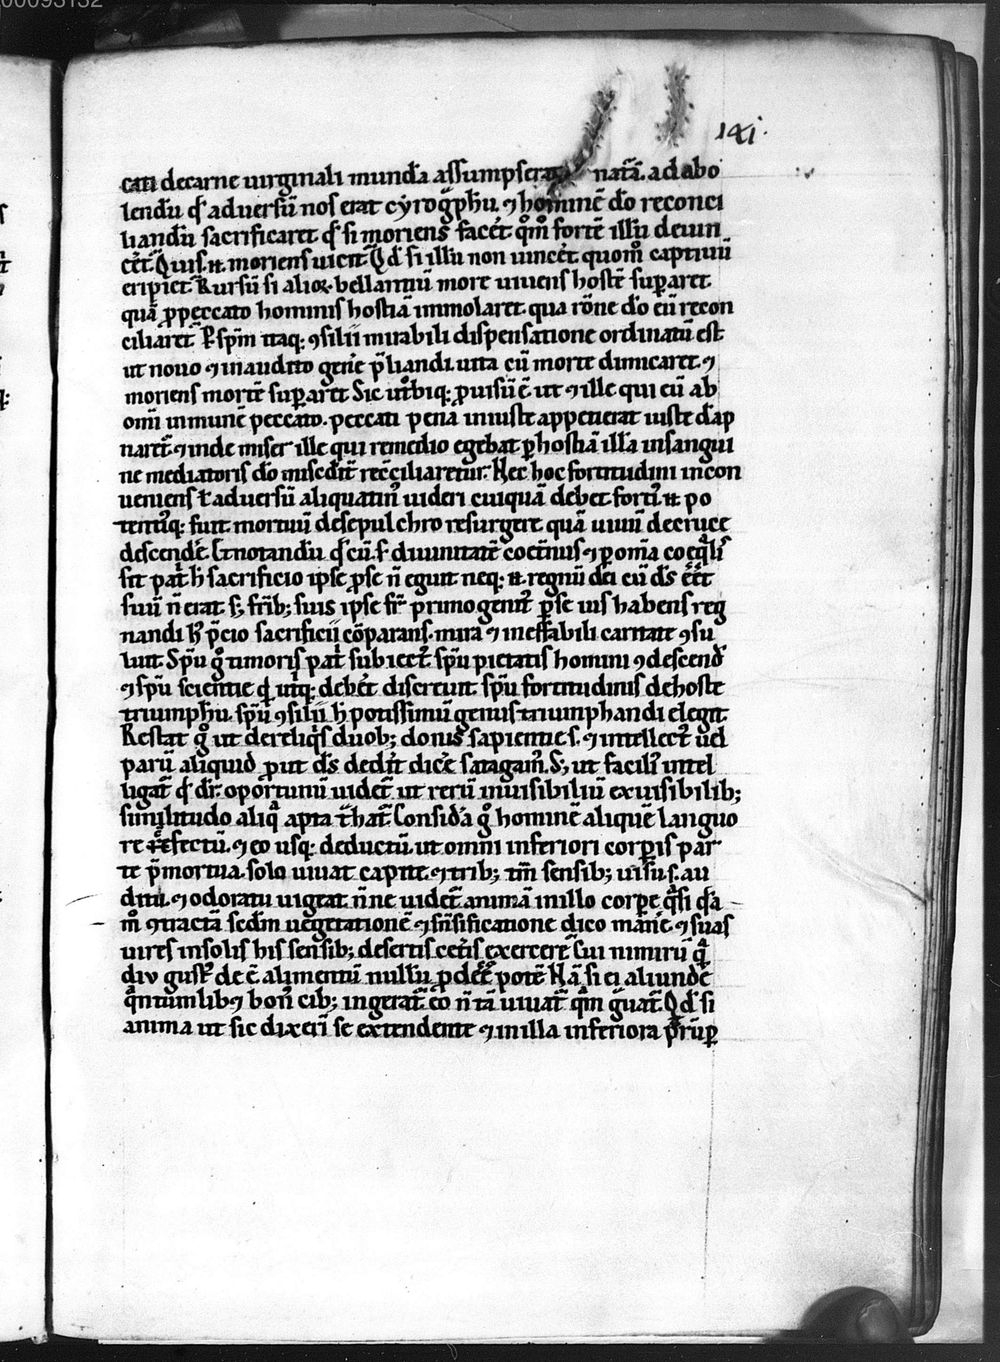 00093132
141.
cati de carne uirginali munda assumpserat natā. ad abo
lendū qd aduersū nos erat cyrogphū. ⁊ hominē do reconci
liandū sacrificaret qd si moriens facet qm̊ fortē illū deuin
cēt. Quis .n. moriens uicit. Qd si illū non uincēt quom̊ captiuū
eriperet. Rursū si alioꝝ bellantiū more uiuens hostē supararet
quā p peccato hominis hostiā immolaret. qua rōne do eū recon
ciliaret. P spm itaq; ꝯsilii mirabili dispensatione ordinatū est
ut nouo ⁊ inaudito genē pliandi uita cū morte dimicaret ⁊
moriens mortē supararet. Sic utrbiq; puisū ē ut ⁊ ille qui cū ab
omi inmunē peccato. peccati pena iniuste appetierat iuste dāp
naret. ⁊ inde miser ille qui remedio egebat p hostiā illā in sangui
ne mediatoris do misedit recciliaretur. Nec hoc fortitudini incon
ueniens ł aduersū aliquatin uideri cuiquā debet. forti .n. po
tentiq; fuit mortuū de sepulchro resurgere quā uiuū de cruce
descendē. Et notandū qd cū s. diuinitatē coetnus ⁊ p oma coeqlis
sit pat h sacrificio ipse p se n̄ eguit neq; .n. regnū dei cū ds eēt
suū n̄ erat s; frib; suis ipse fr primogenit p se ius habens reg
nandi h pcio sacrificii cōparans. mira ⁊ ineffabili caritate ꝯsu
luit. Spū g̊ timoris pat subiect. spū pietatis homini ꝯdescend
⁊ spū scientie qd utiq; debet discreuit. spū fortitudinis de hoste
triumphū. spū ꝯsilii h potissimū genus triumphandi elegit.
Restat g̊ ut de reliqs duob; donis sapientie .s. ⁊ intellect uel
parū aliquid put ds dedit dicē satagam. S; ut facili intel
ligat qd dr. oportunū uidet ut rerū inuisibiliū ex uisibilib;
similitudo aliq apta t̄hat. Considā g̊ hominē aliquē languo
re refectū. ⁊ eo usq; deductū. ut omni inferiori corpis par
te pmortua. solo uiuat capite. ⁊ trib; tm̄ sensib; uisu .s. au
ditu. ⁊ odoratu uigeat n̄ne uidet animā in illo corpe qsi qdā
m̊ ꝯtractā sedm uegetationē ⁊ sensificatione dico manē. ⁊ suas
uires in solis his sensib; desertis cetis exercere. Cui nimirū q
diu gust deē alimentū nullū pdeē potē. Nā si ei aliundē
qntumlibꝫ boni cib; ingerat. eo n̄ tā uiuat qm guat. Qd si
anima ut sic dixerī se extendente ⁊ in illa inferiora prūp